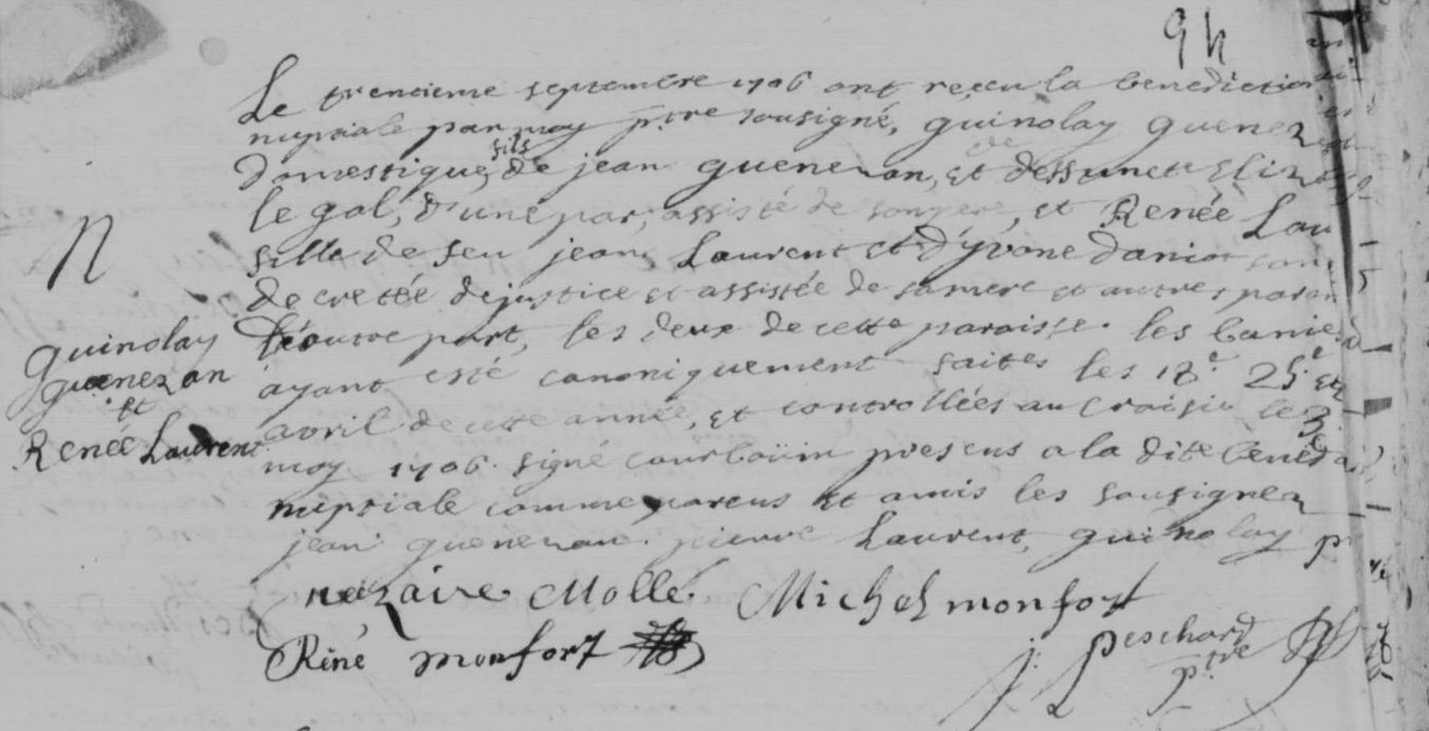 94
Le trentieme septembre 1706 ont reçeu la benediction
nuptiale par moy ptre sousigné, guinolay guenez
domestique, fils de jean guenezan, et deffuncte Eliz
le gal, d'une part, assisté de son pere, et Renée Lau
fille de feu jean Laurent et d'yvone daniot
decretée de justice et assistée de sa mere et autres paren
d'autre part, les deux de cette paroisse. les banies
ayant esté canoniquement faites les 18e 25e et
avril de cette année, et controllées au Croisic le 3e
may 1706. signé courboüin presens a la dite bened
nuptiale comme parens et amis les sousignez
jean guenezan. pierre Laurent, guinolay
nazaire Mollé. Michel monfort
René monfort
j. peschard
ptre
n
guinolay
guenezan
et
Renée Laurent